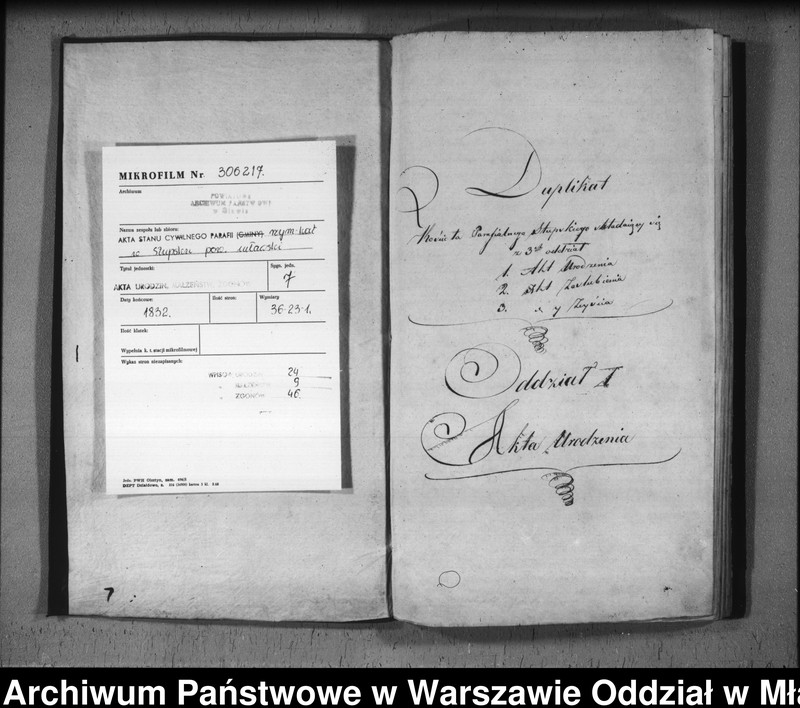 MIKROFILM Nr 306217.
Archiwum
ARCHIWUM
Nazwa zespołu lub zbioru:
AKTA STANU CYWILNEGO PARAFII (GMINY) rzym-kat
w Słupsku pow. mławski
Tytuł jednostki:
Sygn. jedn.
7
AKTA URODZIN,
Daty końcowe:
1832.
Ilość stron:
Wymiary
36-23-1.
Ilość klatek:
Wypełnia k. i stacji mikrofilmowej
Wykaz stron niezapisanych:
24
9
ZGONÓW 46.
7
Duplikat
Kościoła Parafialnego Słupskiego składaiący się
z 3ch oddział
1. Akt Urodzenia
2. Akt Zaślubienia
3. " y Zeyścia
Oddział I
Akta Urodzenia
Archiwum Państwowe w Warszawie Oddział w Mła